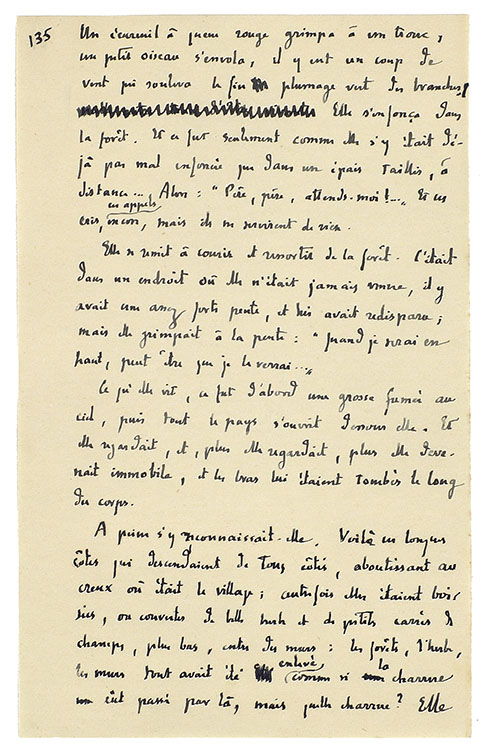 135
Un écureuil à queue rouge grimpa à un tronc,
un petit oiseau s'envola, il y eut un coup de
vent qui souleva le fin plumage vert des branches,
Elle s'enfonça dans
la forêt. Et ce fut seulement comme elle s'y était dé-
jà pas mal enfoncée que dans un épais taillis, à
distance..., Alors : "Père, père, attends-moi !..." Et ces
cris, ces appels encore, mais ils ne servirent de rien.
Elle se remit à courir et ressortit de la forêt. C'était
dans un endroit où elle n'était jamais venue, il y
avait une assez forte pente, et lui avait redisparu ;
mais elle grimpait à la pente : "Quand je serai en
haut, peut être que je le verrai..."
Ce qu'elle vit, ce fut d'abord une grosse fumée au
ciel, puis tout le pays s'ouvrit dessous elle. Et
elle regardait, et, plus elle regardait, plus elle deve-
nait immobile, et les bras lui étaient tombés le long
du corps.
A peine s'y reconnaissait-elle. Voilà ces longues
côtes qui descendaient de tous côtés, aboutissant au
creux où était le village ; autrefois elles étaient boi-
sées, ou couvertes de belle herbe et de petits carrés de
champs, plus bas, entre des murs : les forêts, l'herbe,
les murs tout avait été enlevé, comme si la charrue
eût passé par là, mais quelle charrue ? Elle